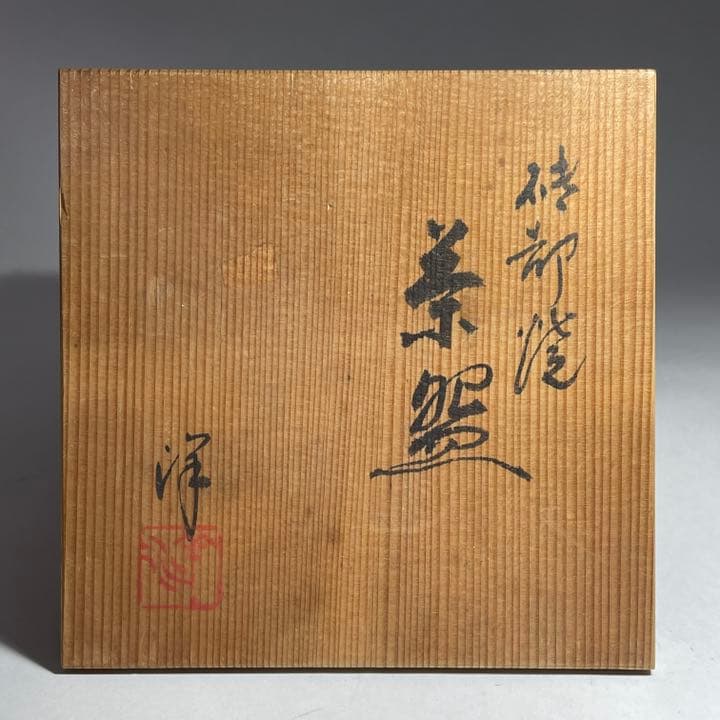 砥部焼
茶盌
洋